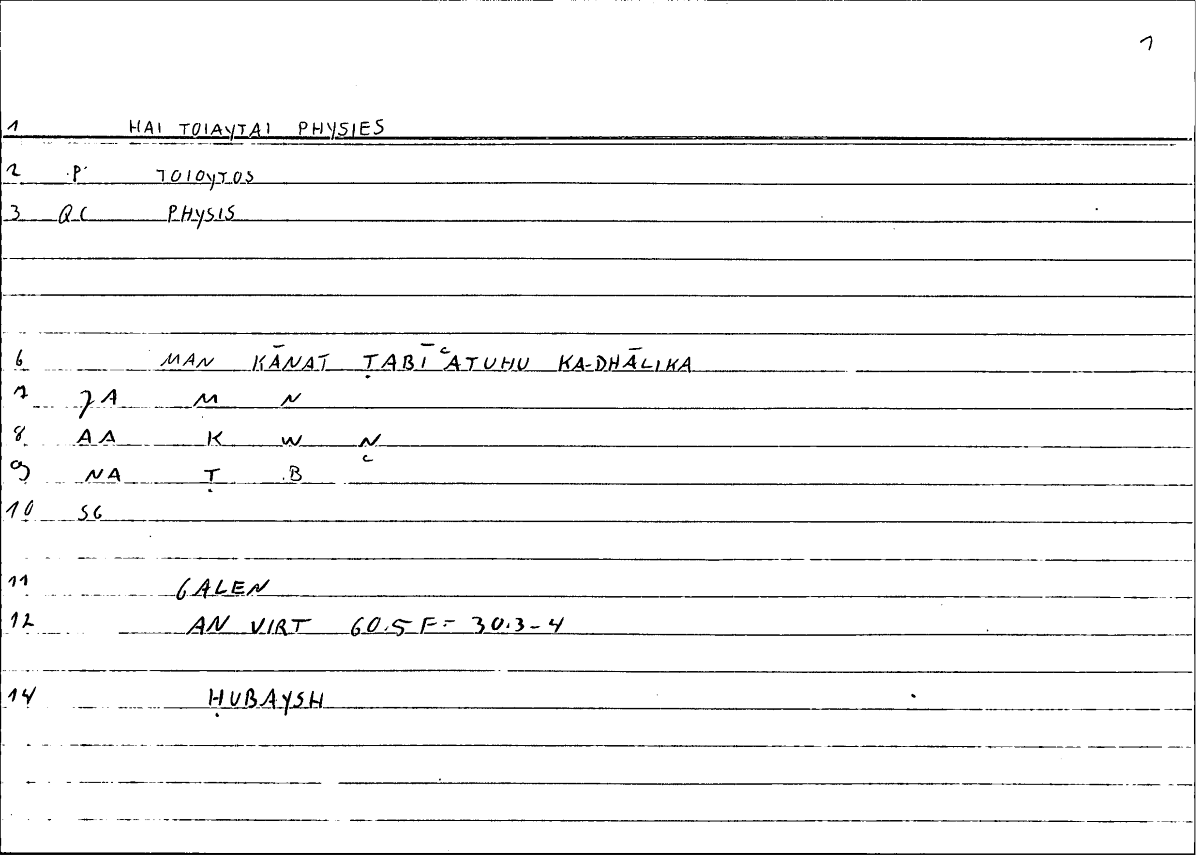 1
1 HAI TOIAYTAI PHYSIES
2 P TOIOYTOS
3 QC PHYSIS
6 MAN KĀNAT ṬABĪʿATUHU KA-DHĀLIKA
7 JA M N
8 AA K W N
9 NA Ṭ B ʿ
10 SG
11 GALEN
12 AN VIRT 60.5 F = 30.3-4
14 ḤUBAYSH